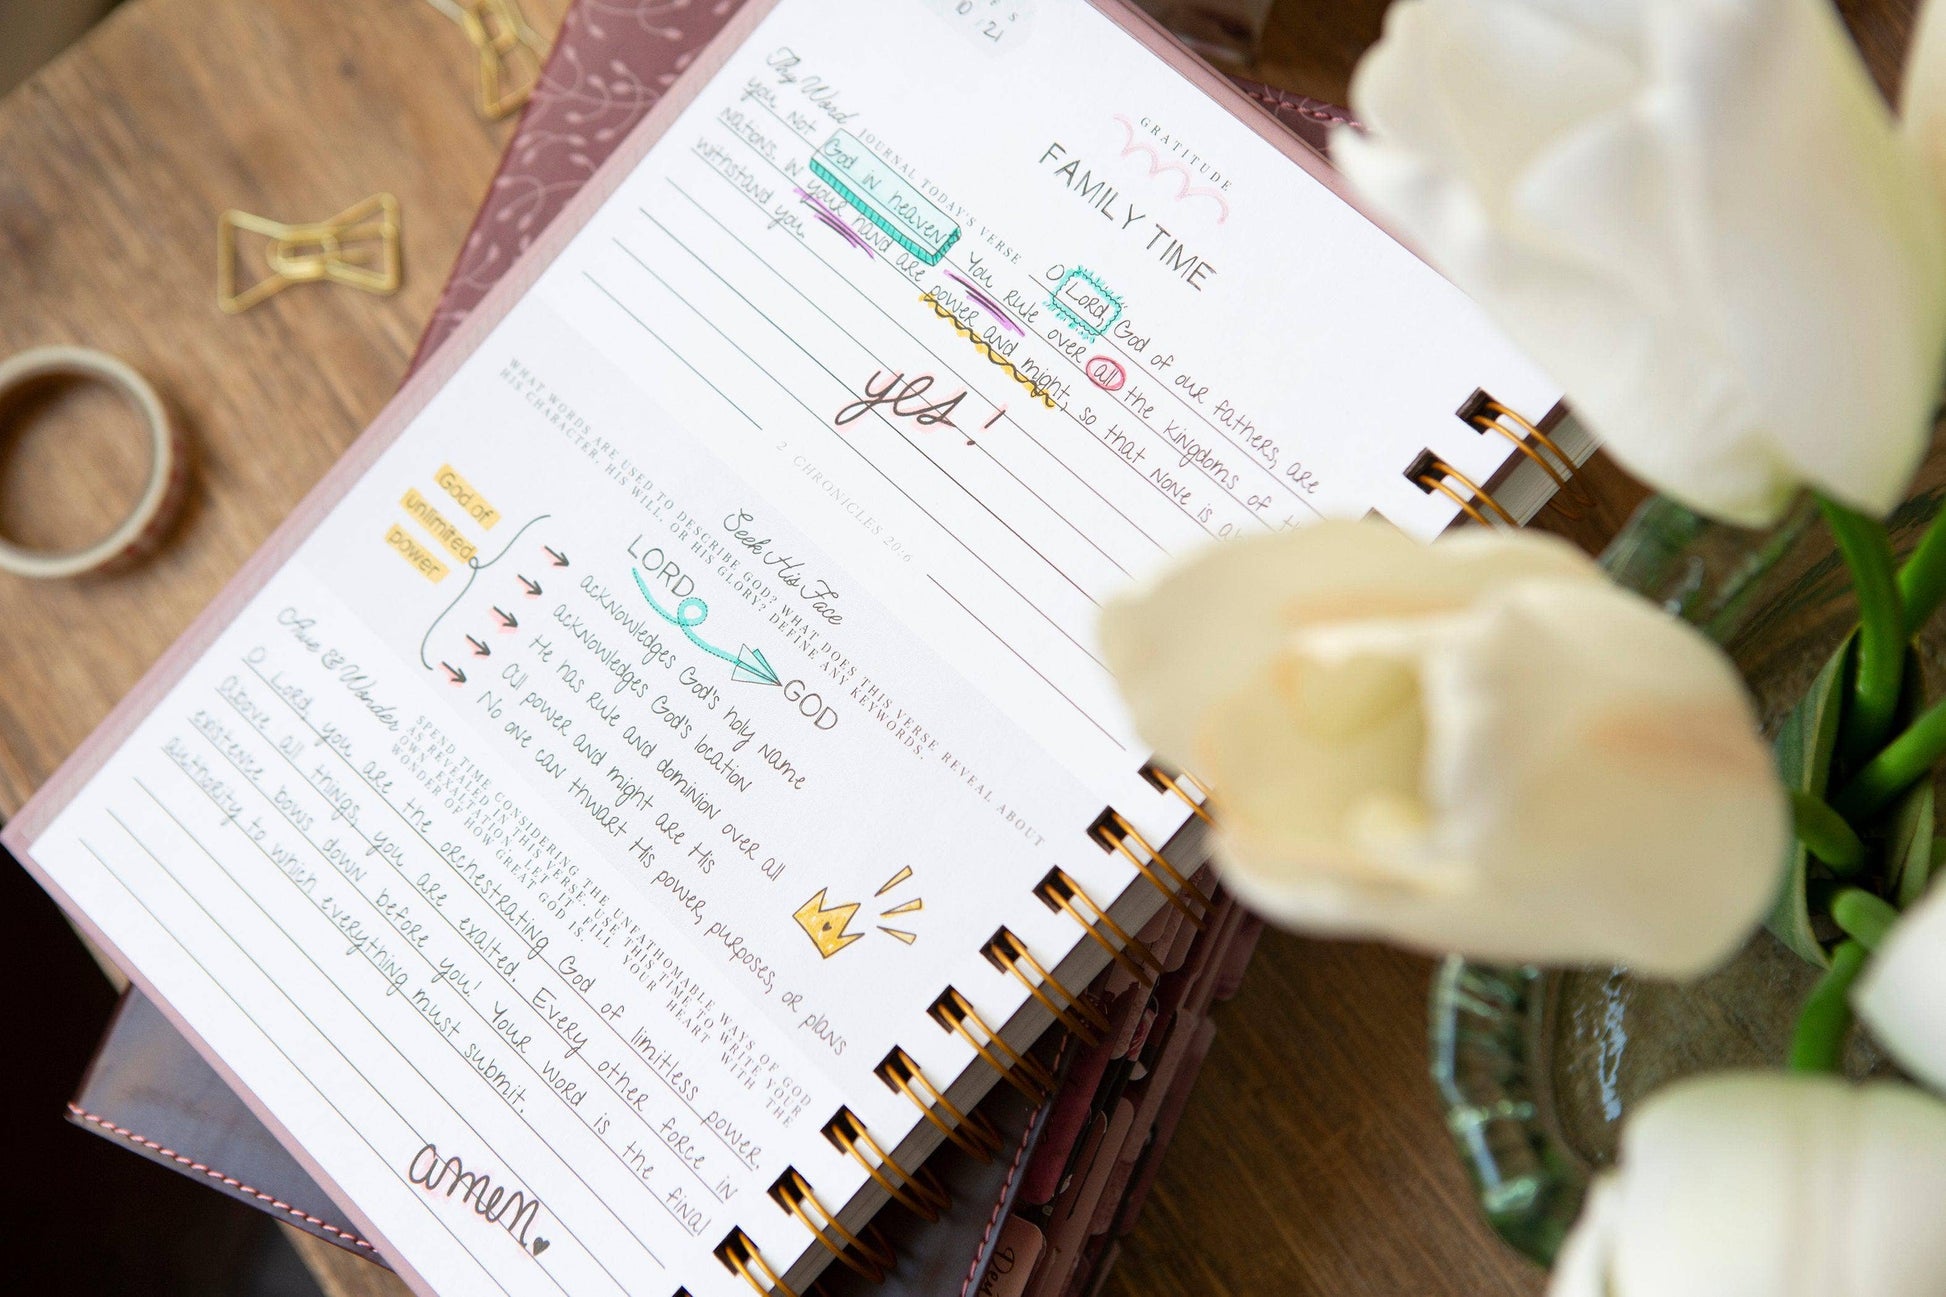 10/21
GRATITUDE
FAMILY TIME
Thy Word JOURNAL TODAY'S VERSE
O Lord, God of our fathers, are
you not God in heaven? You rule over all the kingdoms of
nations. In your hand are power and might, so that none is
withstand you.
yes!
2 CHRONICLES 20:6
Seek His Face
WHAT WORDS ARE USED TO DESCRIBE GOD? WHAT DOES THIS VERSE REVEAL ABOUT
HIS CHARACTER, HIS WILL, OR HIS GLORY? DEFINE ANY KEYWORDS.
LORD GOD
God of
unlimited
power
acknowledges God's holy name
acknowledges God's location
He has rule and dominion over all
all power and might are His
No one can thwart His power, purposes, or plans
Awe & Wonder
SPEND TIME CONSIDERING THE UNFATHOMABLE WAYS OF GOD
AS REVEALED IN THIS VERSE. USE THIS TIME TO WRITE YOUR
OWN EXALTATION. LET IT FILL YOUR HEART WITH THE
WONDER OF HOW GREAT GOD IS.
O Lord, you are the orchestrating God of limitless power.
Above all things, you are exalted. Every other force in
existence bows down before you! Your word is the final
authority to which everything must submit.
amen.